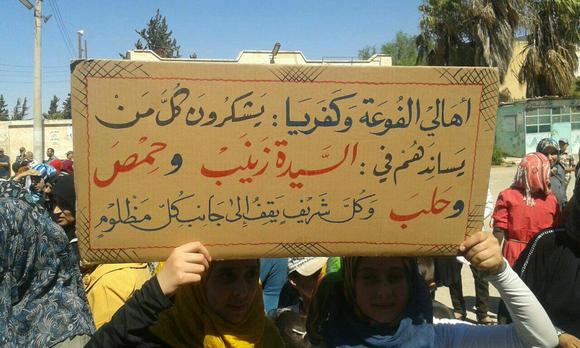 أهالي الفوعة وكفريا: يشكرون كل من
يساندهم في: السيدة زينب وحمص
وحلب وكل شريف يقف إلى جانب كل مظلوم